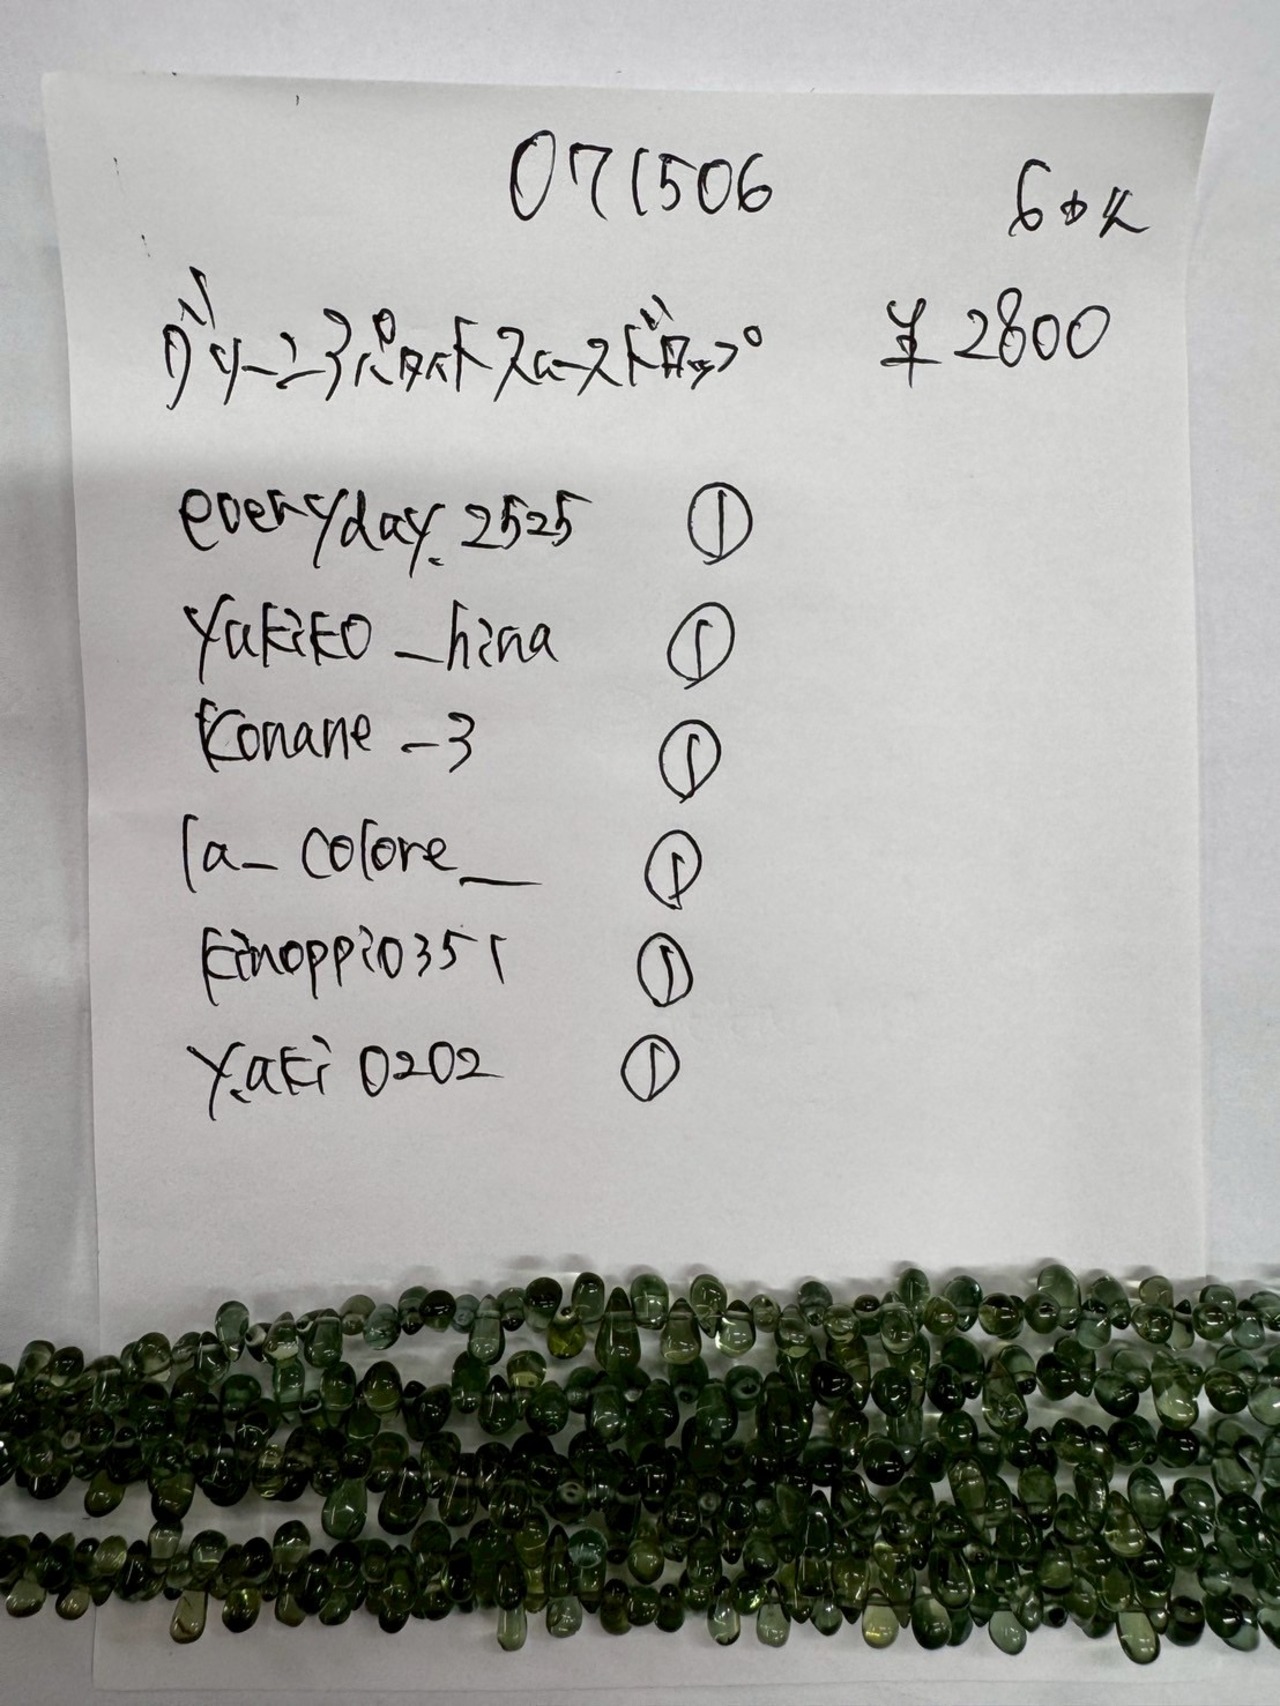 071506 6本
グリーンアパタイトスムースドロップ ¥2800
everyday.2525 ①
yakiko_hina ①
Konane_3 ①
la_colore_ ①
kinoppi0351 ①
y.aki0202 ①